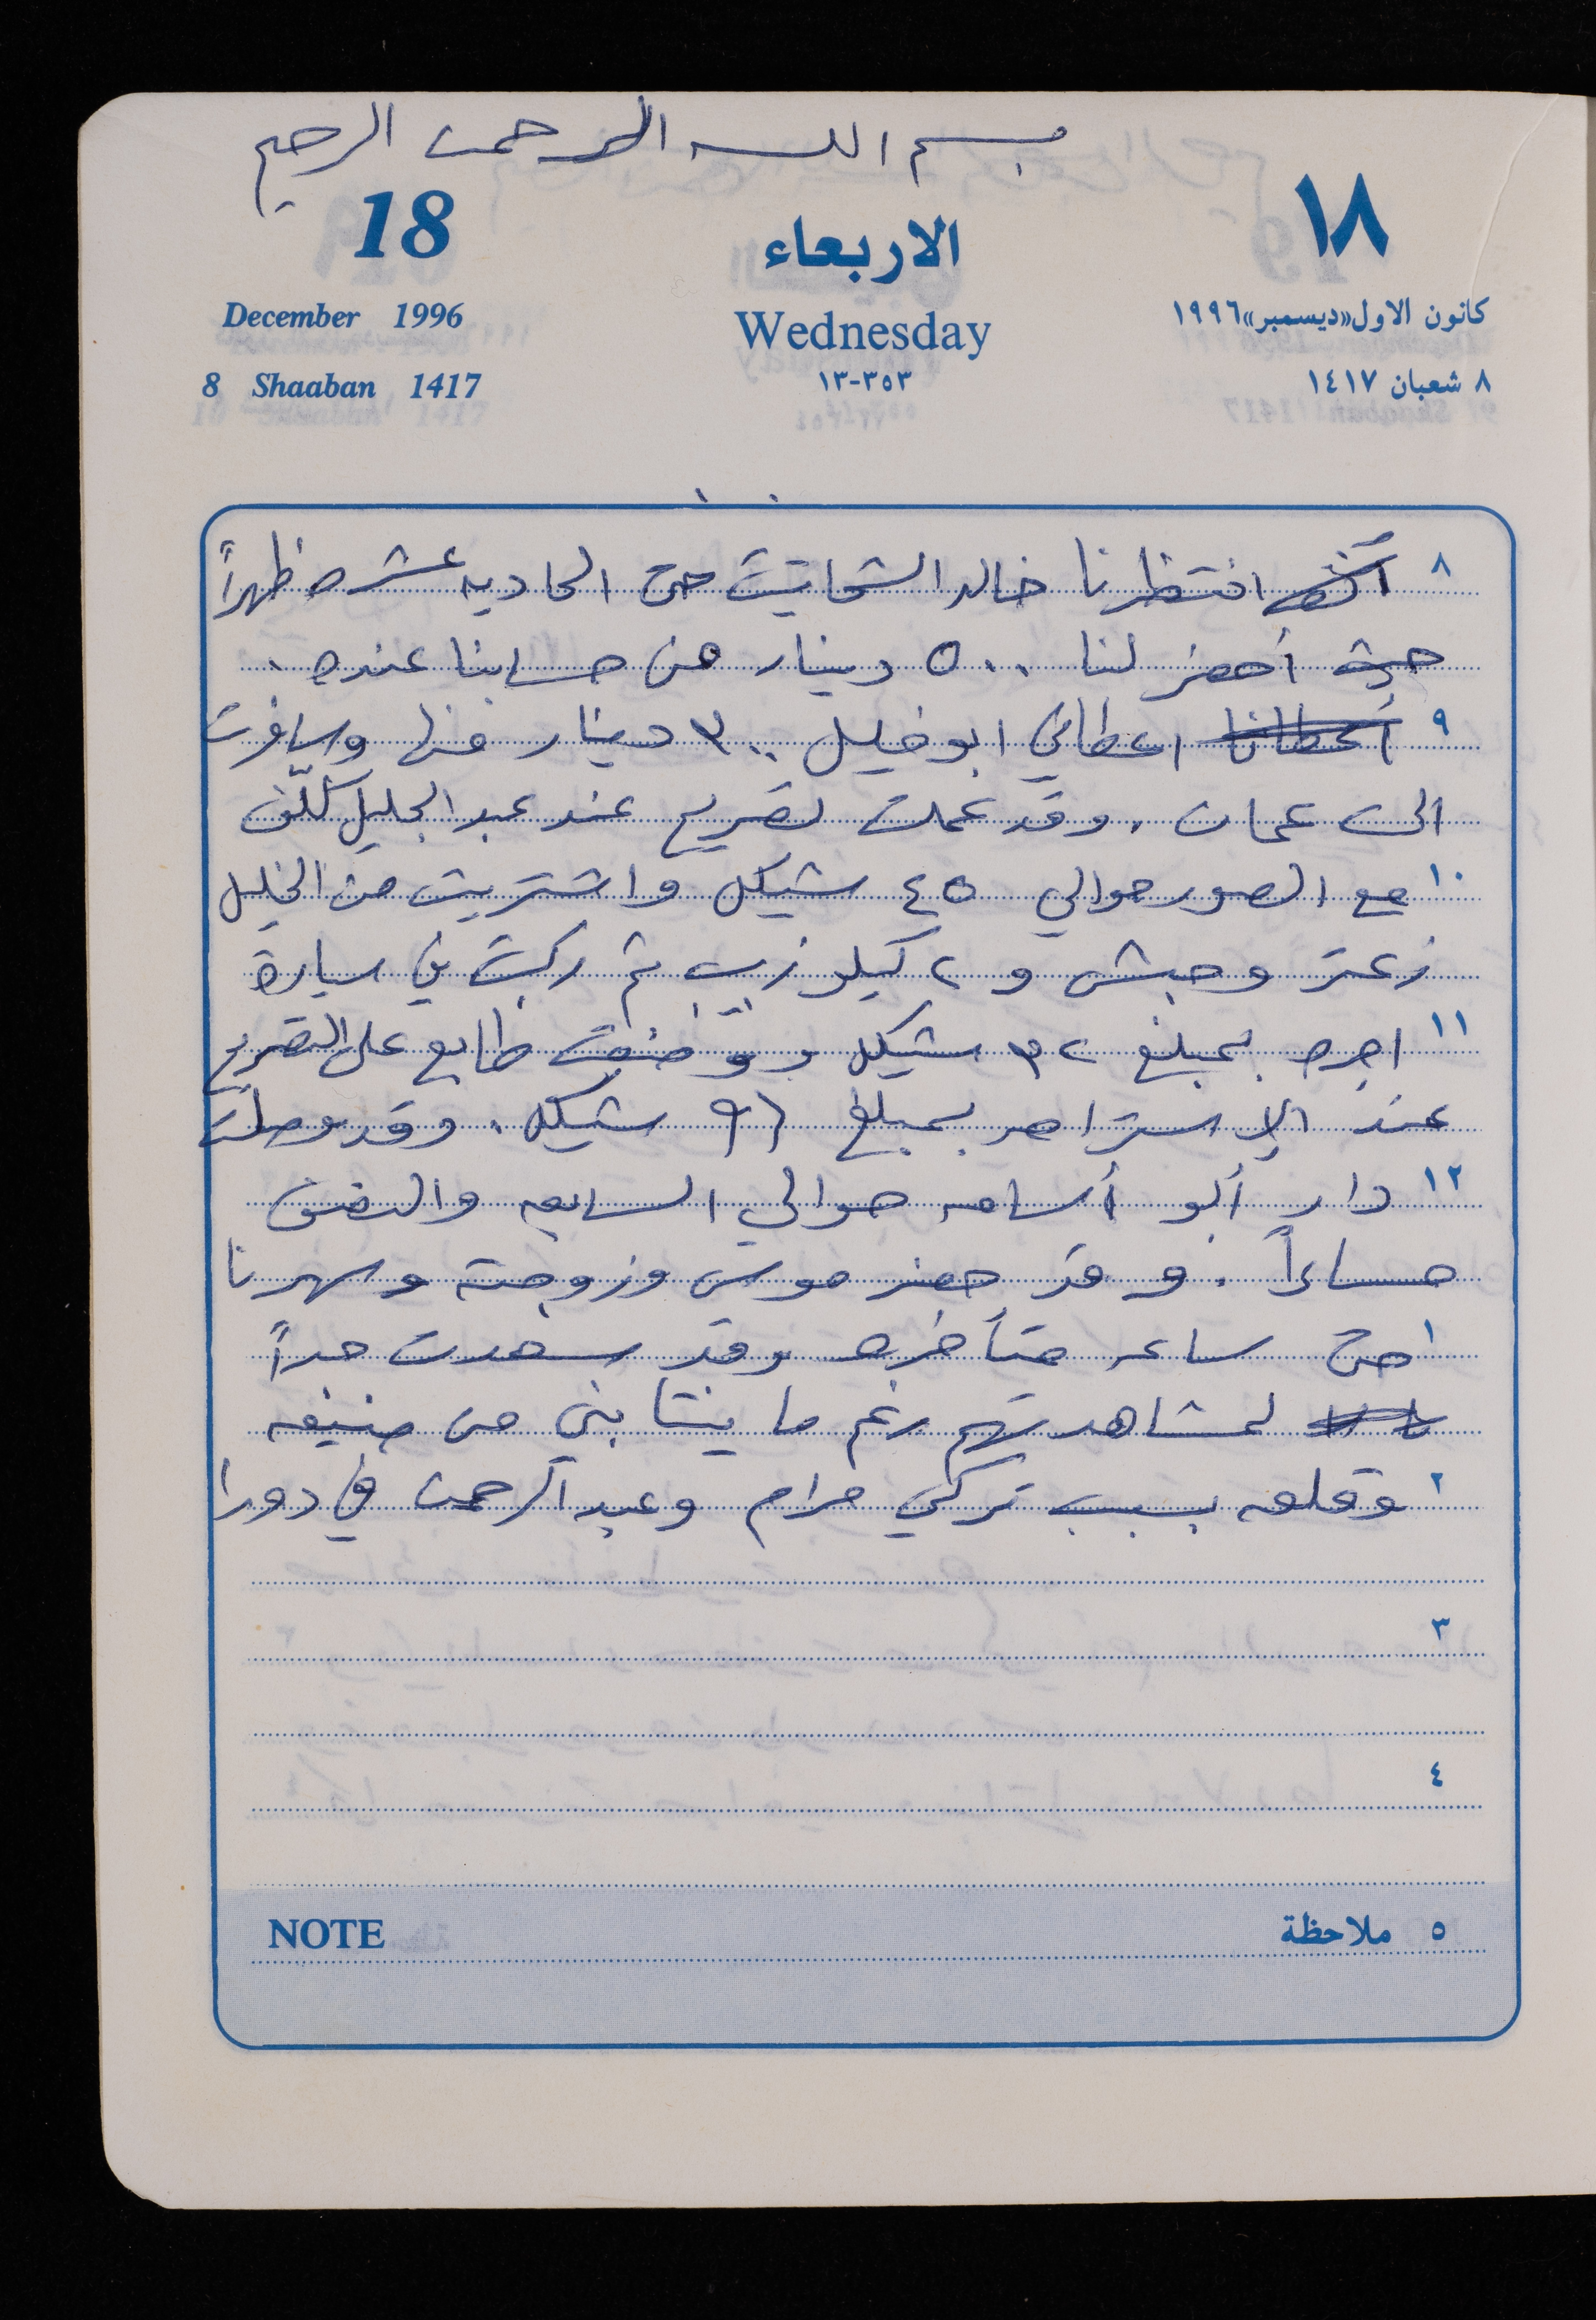 بسم الله الرحمن الرحيم
18 الاربعاء ١٨
December 1996 Wednesday كانون الاول «ديسمبر» ١٩٩٦
8 Shaaban 1417 ٣٥٣-١٣ ٨ شعبان ١٤١٧
٨ انتظرنا خالد الشحاتيت حتى الحاديه عشره ظهراً
حيث أحضر لنا ٥٠٠ دينار من حسابنا عنده.
٩ أعطانا اعطاني ابو خليل ٣٠٠ دينار منها وسافرت
الى عمان. وقد عملت تصريح عند عبد الجليل كلّف
١٠ مع الصور حوالي ٤٥ شيكل واشتريت من الخليل
زعتر وجبش و ٢ كيلو زبيب ثم ركبت في سيارة
١١ اجره بمبلغ ٣٢ شيكل ووضعت طابع على التصريح
عند الاستراحه بمبلغ شيكل. وقد وصلت
١٢ دار أبو أسامه حوالي السابعه والنصف
مساءاً. وقد حضر موسى وزوجته وسهرنا
١ حتى ساعه متأخره وقد سعدت جداً
لمشاهدتهم رغم ما ينتابني من ضيقه
٢ وقلق بسبب تركي مرام وعبد الرحمن في دورا
٣
٤
NOTE ٥ ملاحظة